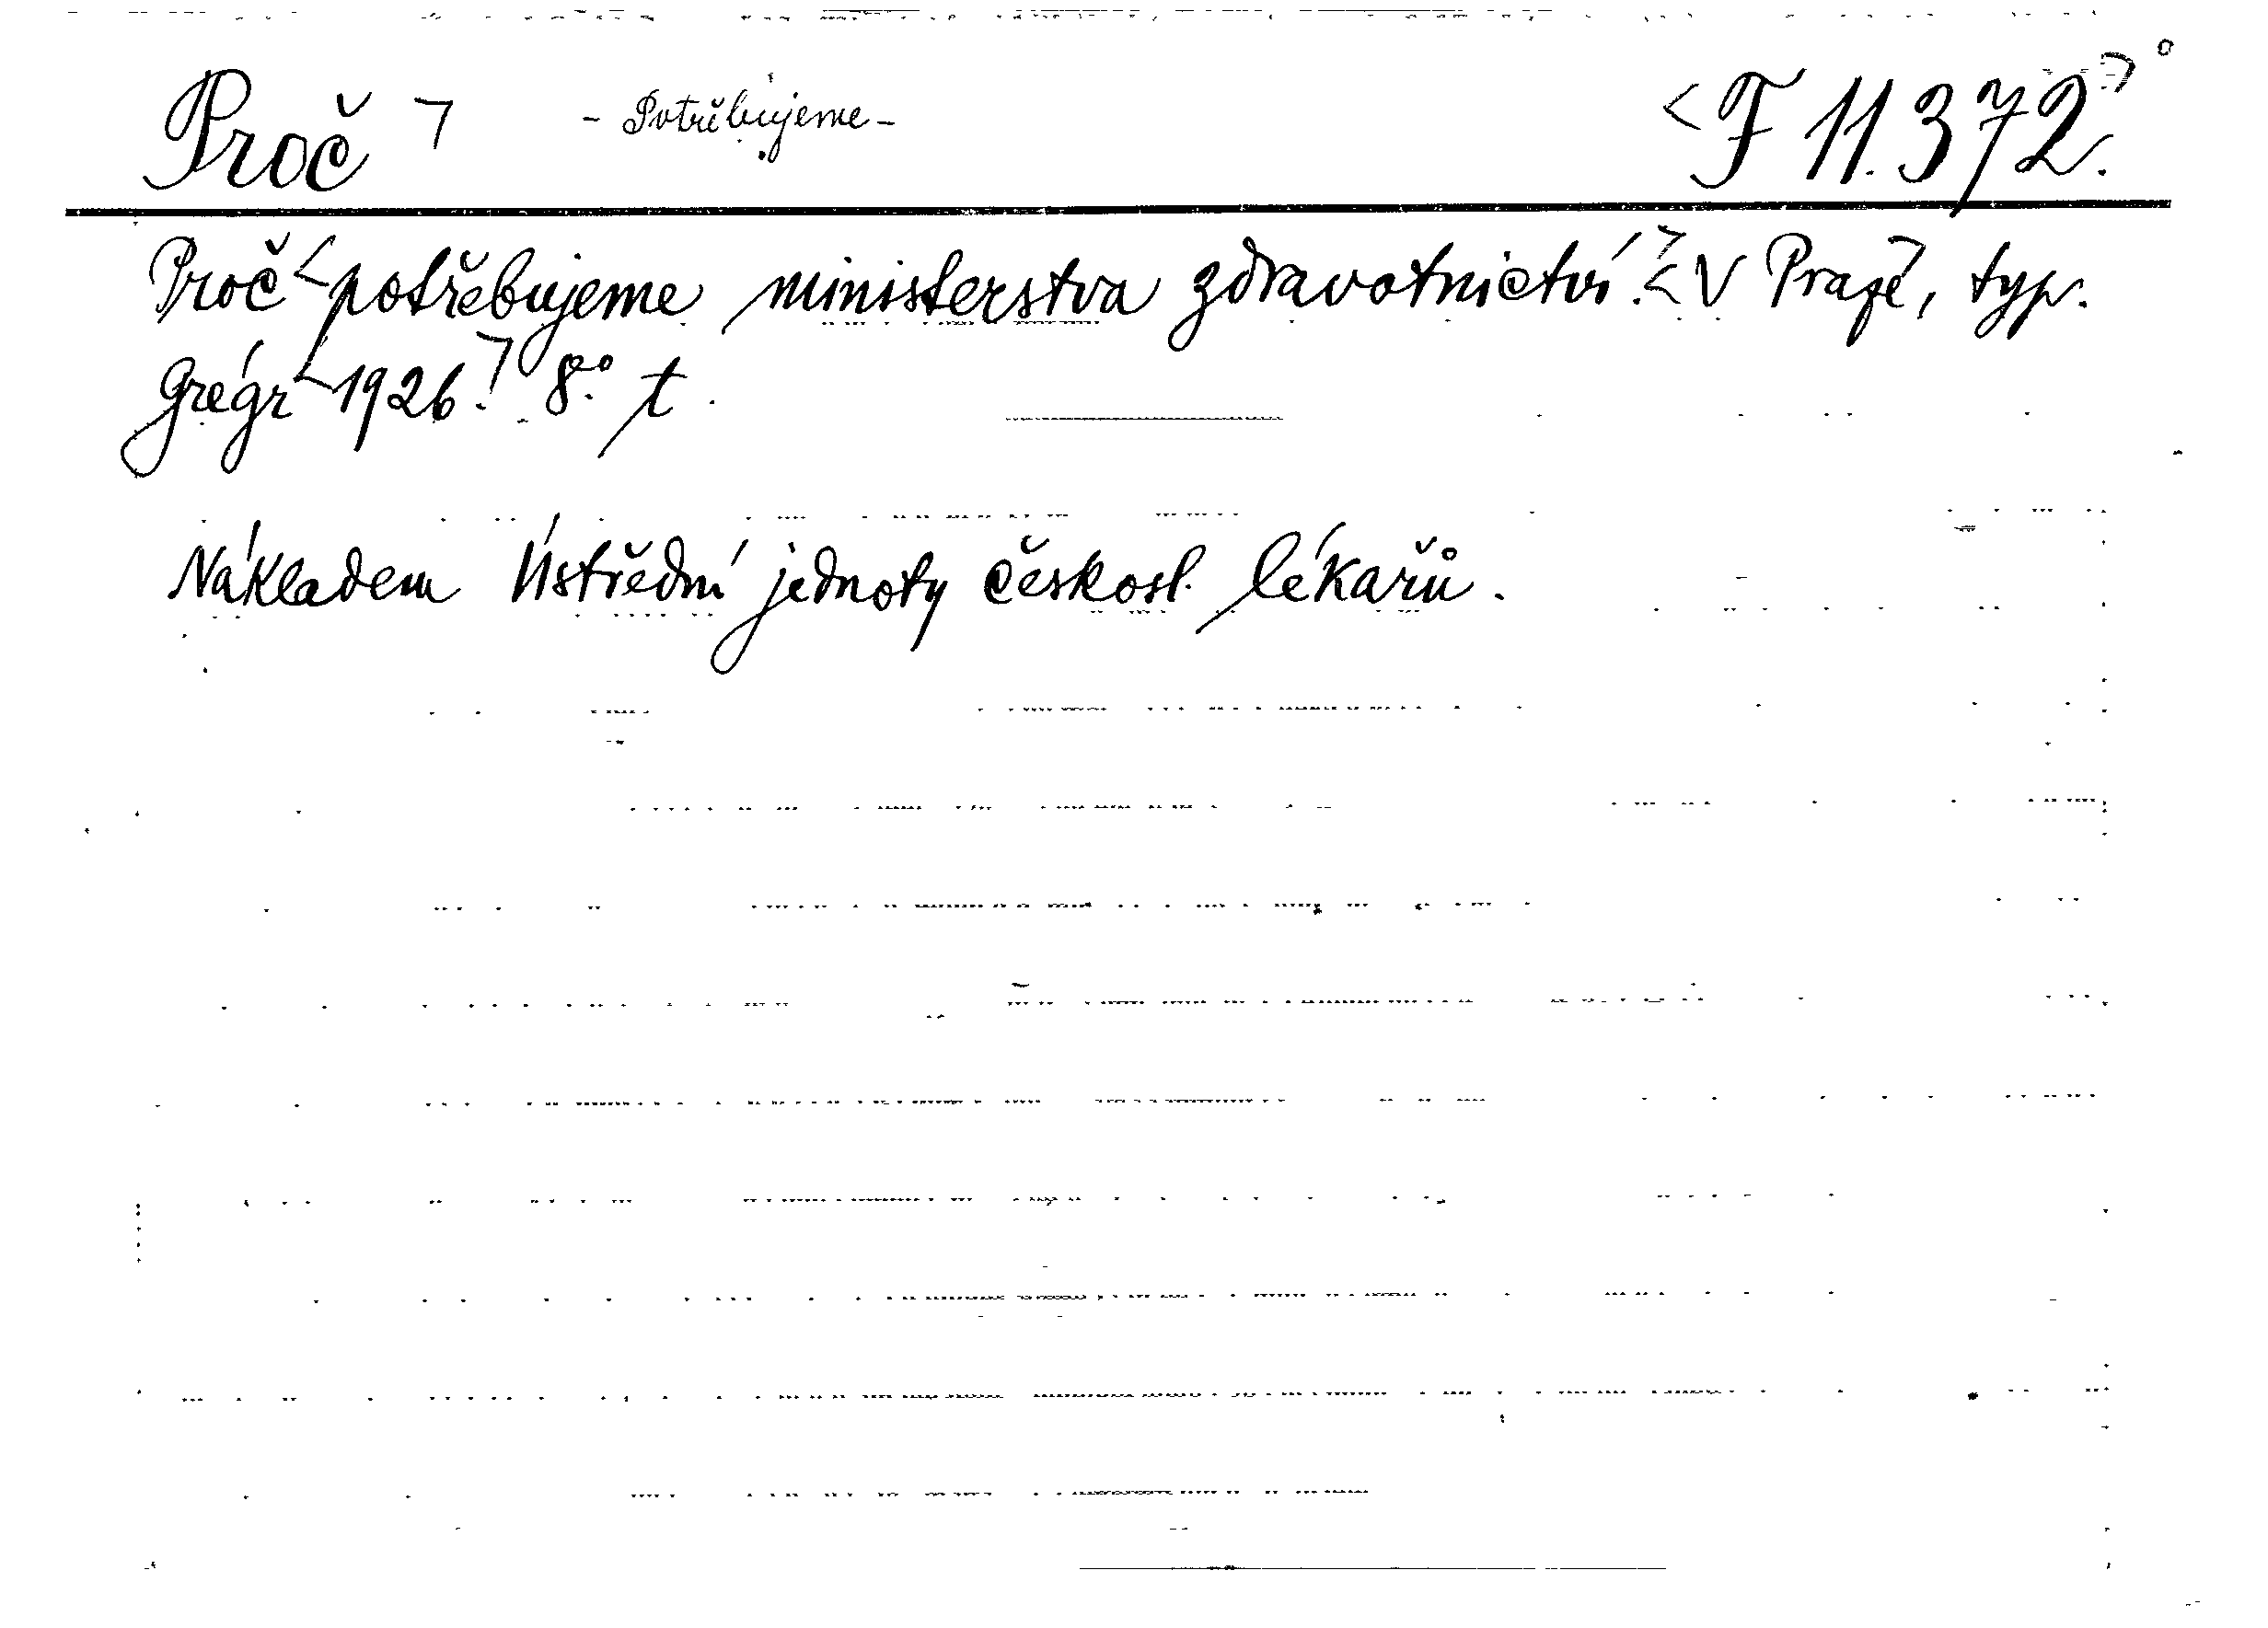 Proč ㄱ - Potřebujeme - <F 11.372.ㄱ°
Proč <potřebujeme ministerstva zdravotnictví.ㄱ< V Praze, typ.
Grégr <1926.ㄱ 8.° t.
Nákladem Ústřední jednoty českosl. lékařů.